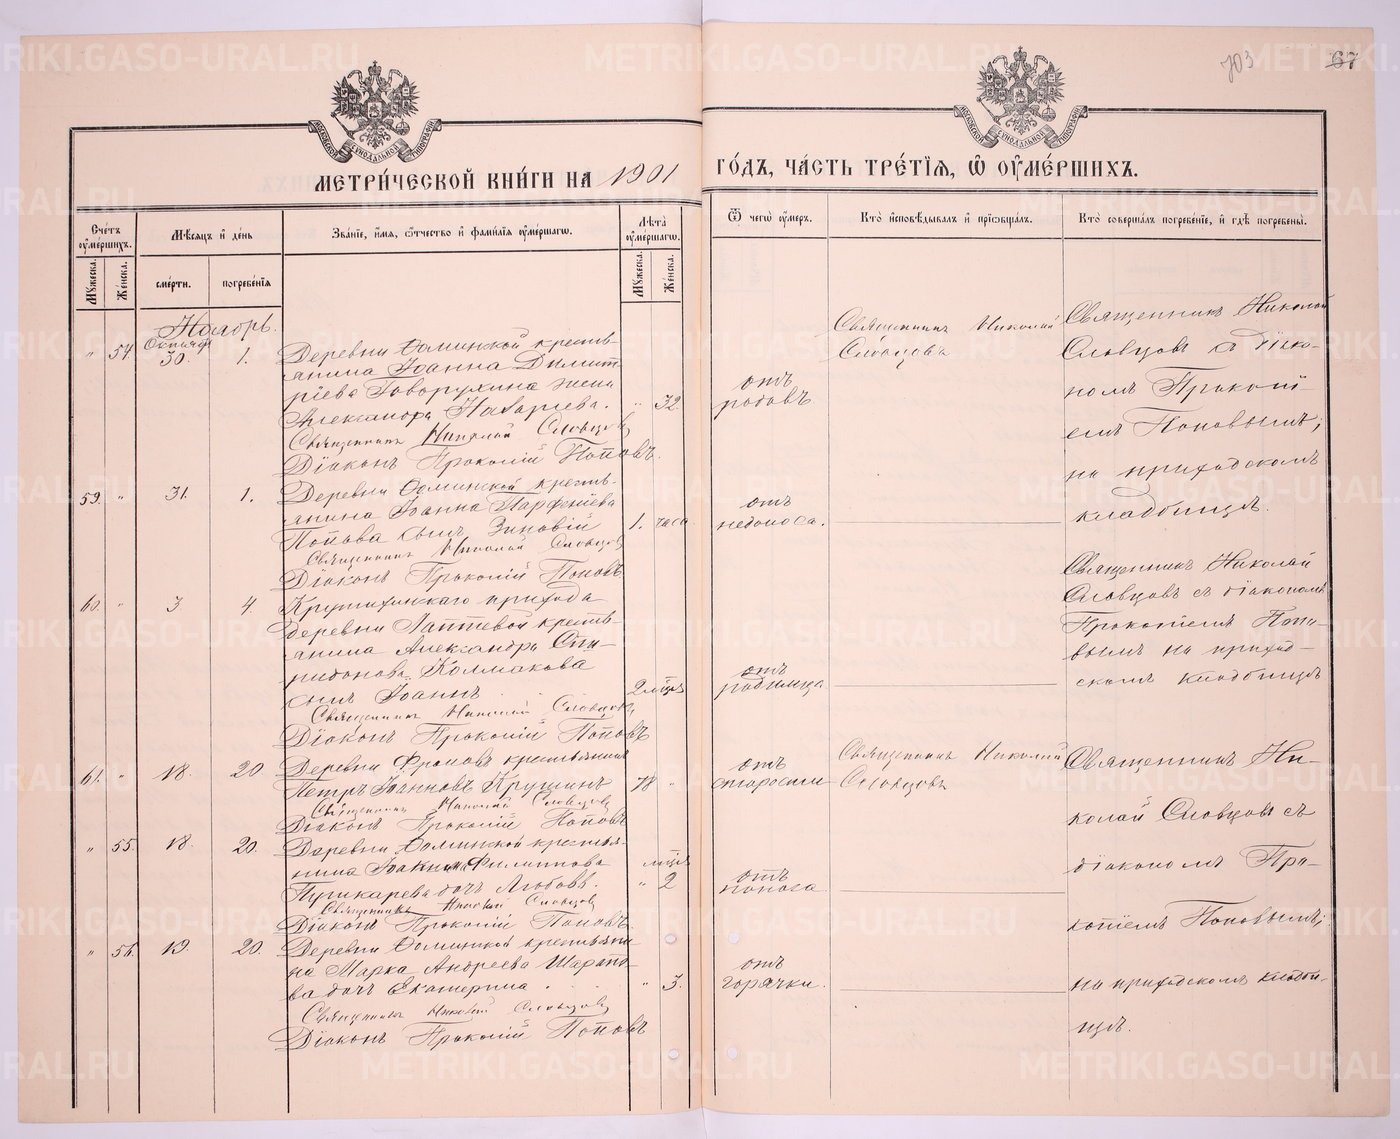 703
67
МЕТРИ́ЧЕСКОЙ КНИ́ГИ НА 1901
ГО́ДЪ, ЧА́СТЬ ТРЕ́ТІЯ, Ѿ ОУМЕ́РШИХЪ.
Сче́тъ оумершихъ.
Мꙋжеска.
Же́нска.
Мѣ́сяцъ и де́нь
сме́рти.
погребе́нїя
Зва́нїе, и́мя, о́тчество и фами́лїя оуме́ршагѡ.
Лѣ́та оуме́ршагѡ.
Мꙋжеска.
Же́нска.
Ѿ чегѡ̀ оу́меръ.
Кто̀ исповѣ́дывалъ и прїѡбща́лъ.
Кто̀ соверша́лъ погребе́нїе, и гдѣ̀ погребены̀.
Ноябрь.
" 54 Октября 30. 1.
Деревни Ѳоминской кресть-
янина Іоанна Димит-
ріева Говорухина жена
Александра Назарьева. " 32
Священникъ Николай Словцовъ
Діаконъ Прокопій Поповъ.
отъ
родовъ
Священникъ Николай
Словцовъ
Священникъ Николай
Словцовъ съ діако-
номъ Прокопі-
емъ Поповымъ;
на приходскомъ
кладбищѣ.
59. " 31. 1.
Деревни Ѳоминской кресть-
янина Іоанна Парфеніева
Попова сынъ Зиновій 1. часа
Священникъ Николай Словцовъ
Діаконъ Прокопій Поповъ
отъ
недоноса.
60. " 3. 4.
Крутихинскаго прихода
деревни Лаптевой кресть-
янина Александра Спи-
ридонова Колмакова
сынъ Іоаннъ 2 мѣсяц
Священникъ Николай Словцовъ
Діаконъ Прокопій Поповъ
отъ
родимца
Священникъ Николай
Словцовъ съ діакономъ
Прокопіемъ Попо-
вымъ на приход-
скомъ кладбищѣ
61. " 18. 20
Деревни крестьянинъ
Петръ Іоанновъ 78 "
Священникъ Николай Словцовъ
Діаконъ Прокопій Поповъ
отъ
старости
Священникъ Николай
Словцовъ
Священникъ Ни-
колай Словцовъ съ
діакономъ Про-
копіемъ Поповымъ;
на приходскомъ кладби-
щѣ.
" 55. 18. 20.
Деревни Ѳоминской крестья-
нина Іоакима Филиппова мѣсяц
Пушкарева дочь Любовь. " 2
Священникъ Николай Словцовъ
Діаконъ Прокопій Поповъ.
отъ
поноса
" 56. 19. 20.
Деревни Ѳоминской крестьяни-
на Марка Андреева Шарапо-
ва дочь Екатерина " 3.
Священникъ Николай Словцовъ
Діаконъ Прокопій Поповъ
отъ
горячки.
METRIKI.GASO-URAL.RU